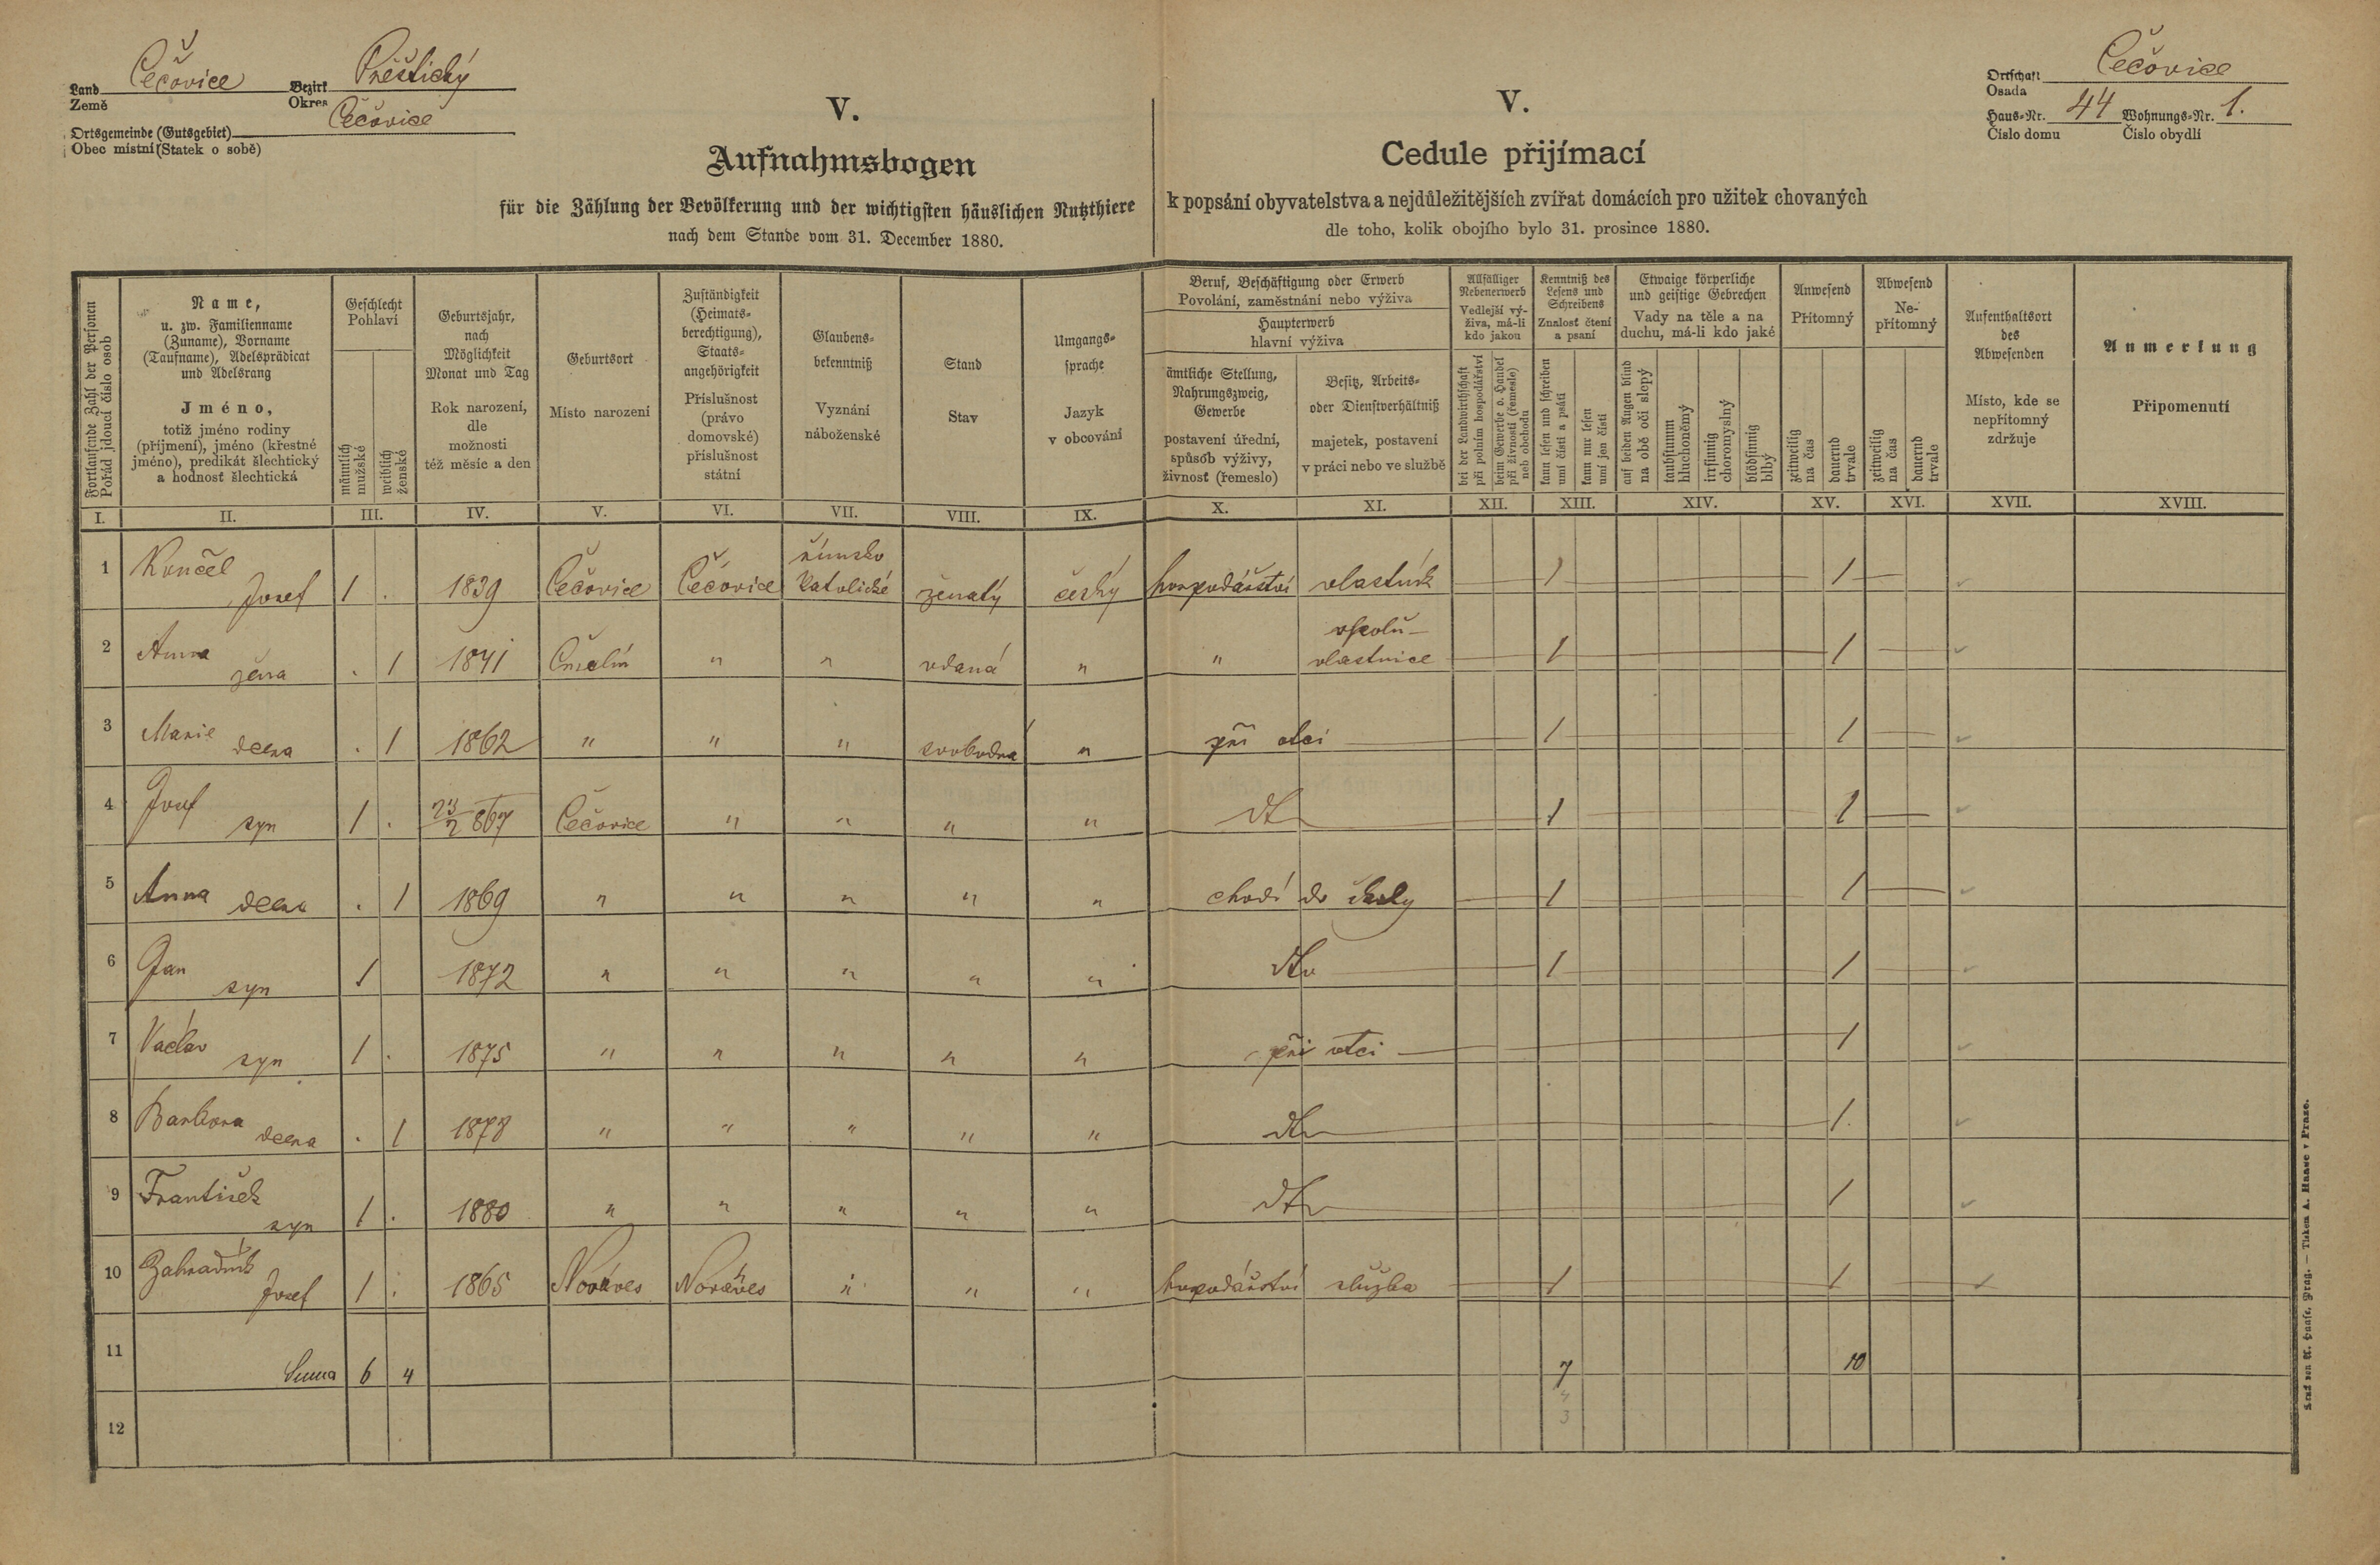 Land Čečovice Bezirk Přeštický
Země Okres
Ortsgemeinde (Gutsgebiet) Čečovice
Obec místní (Statek o sobě)
V.
Aufnahmsbogen
für die Zählung der Bevölkerung und der wichtigsten häuslichen Nutzthiere
nach dem Stande vom 31. December 1880.
V.
Cedule přijímací
k popsání obyvatelstva a nejdůležitějších zvířat domácích pro užitek chovaných
dle toho, kolik obojího bylo 31. prosince 1880.
Ortschaft Čečovice
Osada
Haus-Nr. 44 Wohnungs-Nr. 1.
Číslo domu Číslo obydlí
Fortlaufende Zahl der Personen
Pořád jdoucí číslo osob
Name,
u. zw. Familienname
(Zuname), Vorname
(Taufname), Adelsprädicat
und Adelsrang
Jméno,
totiž jméno rodiny
(příjmení), jméno (křestné
jméno), predikát šlechtický
a hodnosť šlechtická
Geschlecht
Pohlaví
männlich
mužské
weiblich
ženské
Geburtsjahr,
nach
Möglichkeit
Monat und Tag
Rok narození,
dle
možnosti
též měsíc a den
Geburtsort
Místo narození
Zuständigkeit
(Heimats-
berechtigung),
Staats-
angehörigkeit
Příslušnost
(právo
domovské)
příslušnost
státní
Glaubens-
bekenntniß
Vyznání
náboženské
Stand
Stav
Umgangs-
sprache
Jazyk
v obcování
Beruf, Beschäftigung oder Erwerb
Povolání, zaměstnání nebo výživa
Haupterwerb
hlavní výživa
ämtliche Stellung,
Nahrungszweig,
Gewerbe
postavení úřední,
spůsob výživy,
živnosť (řemeslo)
Besitz, Arbeits-
oder Dienstverhältniß
majetek, postavení
v práci nebo ve službě
Allfälliger
Nebenerwerb
Vedlejší vý-
živa, má-li
kdo jakou
bei der Landwirthschaft
při polním hospodářství
beim Gewerbe o. Handel
při živnosti (řemeslo)
neb obchodu
Kenntniß des
Lesens und
Schreibens
Znalosť čtení
a psaní
kann lesen und schreiben
umí čísti a psáti
kann nur lesen
umí jen čísti
Etwaige körperliche
und geistige Gebrechen
Vady na těle a na
duchu, má-li kdo jaké
auf beiden Augen blind
na obě oči slepý
taubstumm
hluchoněmý
irrsinnig
choromyslný
blödsinnig
blbý
Anwesend
Přítomný
zeitweilig
na čas
dauernd
trvale
Abwesend
Ne-
přítomný
zeitweilig
na čas
dauernd
trvale
Aufenthaltsort
des
Abwesenden
Místo, kde se
nepřítomný
zdržuje
Anmerkung
Připomenutí
I. II. III. IV. V. VI. VII. VIII. IX. X. XI. XII. XIII. XIV. XV. XVI. XVII. XVIII.
1 Končel Josef 1 . 1839 Čečovice Čečovice římsko katolické ženatý český hospodářství vlastník 1 1
2 Anna žena . 1 1841 " " vdaná " " spolu-vlastnice 1 1
3 Marie dcera . 1 1862 " " " svobodná " při otci 1 1
4 Josef syn 1 . 867 Čečovice " " " " dto 1 1
5 Anna dcera . 1 1869 " " " " " chodí do školy 1 1
6 Jan syn 1 1872 " " " " " dto 1 1
7 Václav syn 1 . 1875 " " " " " při otci 1
8 Barbora dcera . 1 1878 " " " " " dto 1.
9 František syn 1 . 1880 " " " " " dto 1
10 Zahradník Josef 1 . 1865 Nováves Nováves " " " hospodářství služba 1 1
11 Suma 6 4 7 10
4
3
12
Druck von A. Haase, Prag. — Tiskem A. Haase v Praze.